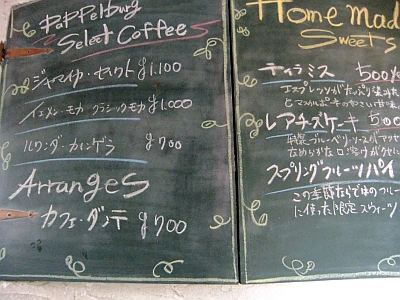 Pappelburg
Select Coffees
ジャマイカ・セレクト ¥1.100
イエメン・モカ クラシックモカ ¥1.000
ルワンダ・カリンゲラ ¥700
Arranges
カフェ・ダンテ ¥700
Home Mad
Sweets
ティラミス 500
エスプレッソがたっぷり染みた
レアチーズケーキ 500
特製ブルーベリーソースがアクセ
なめらかな口溶けがクセに
スプリングフルーツパイ
この季節ならではのフルー
に使った限定スウィーツ